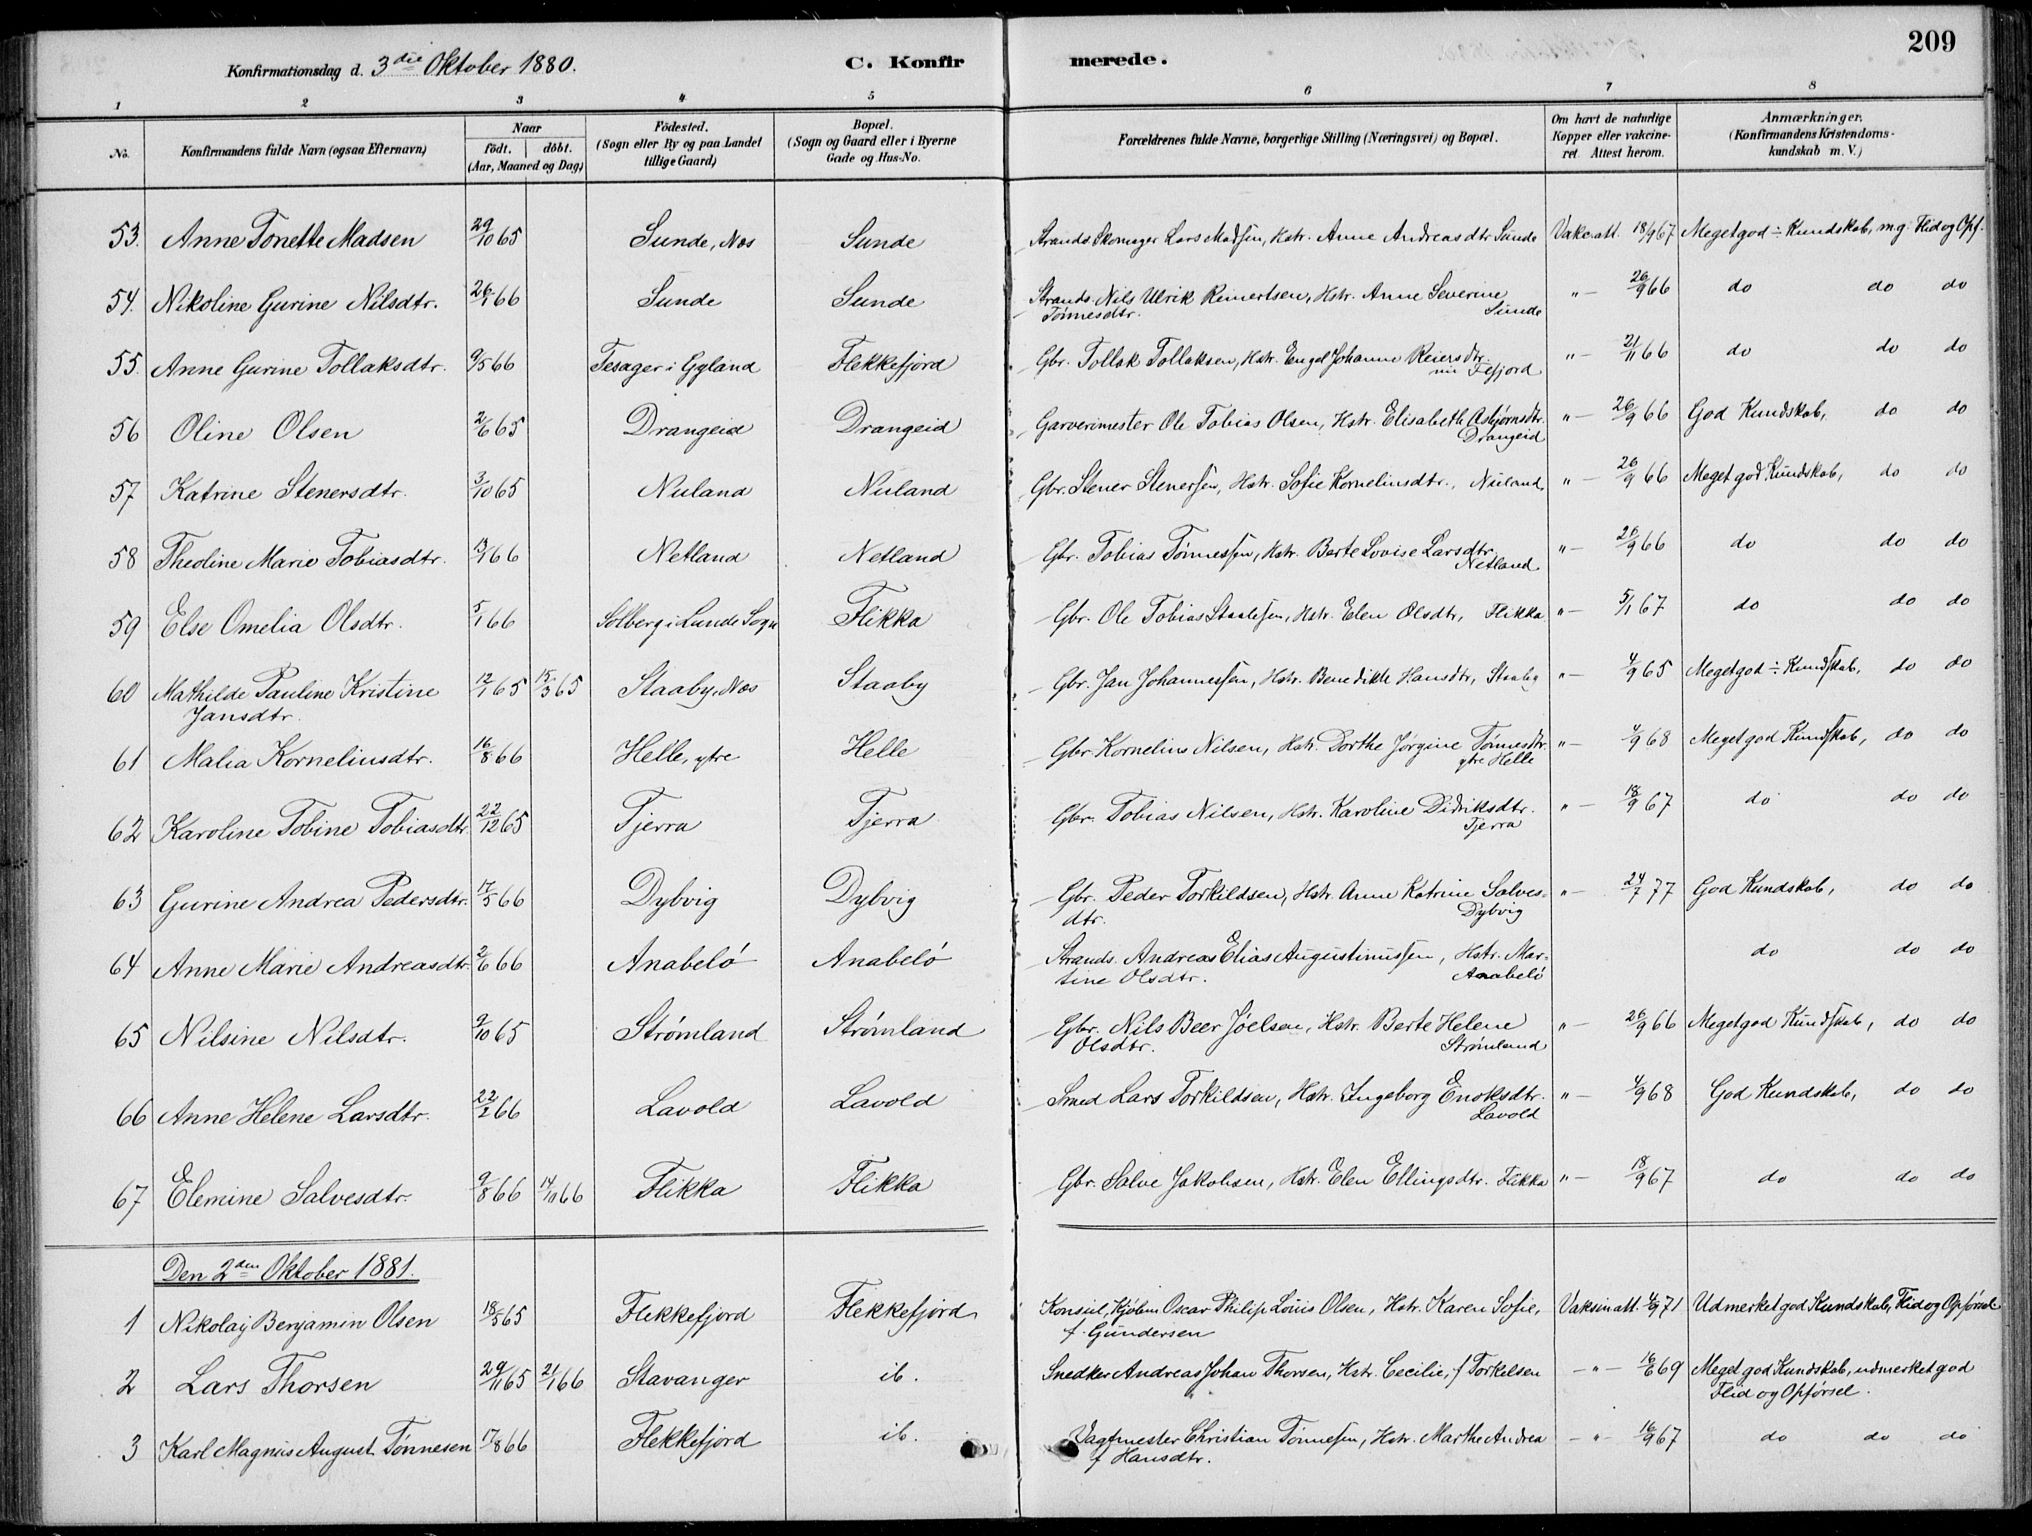 209
Konfirmationsdag d. 3die Oktober 1880. C. Konfirmerede.
1 2 3 4 5 6 7 8
No. Konfirmandens fulde Navn (ogsaa Efternavn) Naar født. døbt. (Aar, Maaned og Dag) Fødested. (Sogn eller By og paa Landet tillige Gaard) Bopæl. (Sogn og Gaard eller i Byerne Gade og Hus-No. Forældrenes fulde Navne, borgerlige Stilling (Næringsvei) og Bopæl. Om havt de naturlige Kopper eller vakcineret. Attest herom. Anmærkninger. (Konfirmandens Kristendomskundskab m. V.)
53. Anne Tonette Madsen 29/10 65 Sunde, Næs Sunde Strands. Skomager Lars Madsen, Hstr. Anne Andreasdtr Sunde Vakc.att. 18/9 67 Meget god ÷ Kundskab, mg. Flid og Opf.
54. Nikoline Gurine Nilsdtr. 26/1 66 Sunde Sunde Strands. Nils Ulrik Reinertsen, Hstr. Anne Severine Tønnesdtr. Sunde " — 26/9 66 do do do
55. Anne Gurine Tollaksdtr. 9/5 66 Tesager i Gyland Flekkefjord Gbr. Tollak Tollaksen, Hstr. Engel Johanne Reiersdtr. nu Fefjord " — 21/11 66 do do do
56 Oline Olsen 2/6 65 Drangeid Drangeid Garverimester Ole Tobias Olsen, Hstr. Elisabeth Asbjørnsdtr. Drangeid " — 26/9 66 God Kundskab, do do
57 Katrine Stenersdtr. 3/10 65 Nuland Nuland Gbr. Stener Stenersen, Hstr. Sofie Kornelinsdtr., Nuland " — 26/9 66 Meget god Kundskab, do do
58 Theoline Marie Tobiasdtr. /1 66 Netland Netland Gbr. Tobias Tønnessen, Hstr. Berte Lovise Larsdtr. Netland " — 26/9 66 do do do
59 Else Omelia Olsdtr. 5/1 66 Solberg i Lunde Sogn Flikka Gbr. Ole Tobias Staalesen, Hstr. Elen Olsdtr, Flikka " — 5/1 67 do do do
60 Mathilde Pauline Kristine Jansdtr. 12/1 65 15/3 65 Staaby, Næs Staaby Gbr. Jan Johannessen, Hstr. Benedikte Hansdtr, Staaby " — 4/9 65 Meget god ÷ Kundskab, do do
61 Malia Kornelinsdtr. 16/8 66 Helle, ytre Helle Gbr. Kornelius Nilsen, Hstr. Dorthe Jørgine Tønnesdtr. ytre Helle " — 4/9 68 Meget god Kundskab, do do
62 Karoline Tobine Tobiasdtr. 22/12 65 Tjerra Tjerra Gbr. Tobias Nilsen, Hstr. Karoline Didriksdtr. Tjerra " — 18/9 67 do do do
63 Gurine Andrea Pedersdtr. 17/5 66 Dybvig Dybvig Gbr. Peder Torkildsen, Hstr. Anne Katrine Salvesdtr. Dybvig " — 24/7 77 God Kundskab, do do
64 Anne Marie Andreasdtr. 2/6 66 Anabelø Anabelø Strands. Andreas Elias Augustinussen, Hstr. Martine Olsdtr. Anabelø do do do
65 Nilsine Nilsdtr. 9/10 65 Strømland Strømland Gbr. Nils Beer Joelsen, Hstr. Berte Helene Olsdtr. Strømland " — 26/9 66 Meget god Kundskab, do do
66 Anne Helene Larsdtr. 22/2 66 Lavold Lavold Smed Lars Torkildsen, Hstr. Ingeborg Enoksdtr. Lavold " — 4/9 68 God Kundskab, do do
67 Elemine Salvesdtr. 9/8 66 14/10 66 Flikka Flikka Gbr. Salve Jakobsen, Hstr. Elen Ellingsdtr. Flikka " — 18/9 67 do do do
Den 2den Oktober 1881.
1 Nikolaij Benjamin Olsen 18/5 65 Flekkefjord Flekkefjord Konsul, Kjøbm. Oscar Philip Louis Olsen, Hstr. Karen Sofie, f. Gundersen Vaksinatt. 4/9 71 Udmerket god Kundskab, Flid og Opførsel
2 Lars Thorsen 29/11 65 21/1 66 Stavanger ib. Snedker Andreas Johan Thorsen, Hstr. Cecilie, f Torkelsen — " — 16/6 69 Meget god Kundskab, udmerket god Flid og Opførsel.
3 Karl Magnus August Tønnesen 17/8 66 Flekkefjord ib. Vagtmester Christian Tønnesen, Hstr. Marthe Andrea f Hansdtr. — " — 16/9 67 do do do